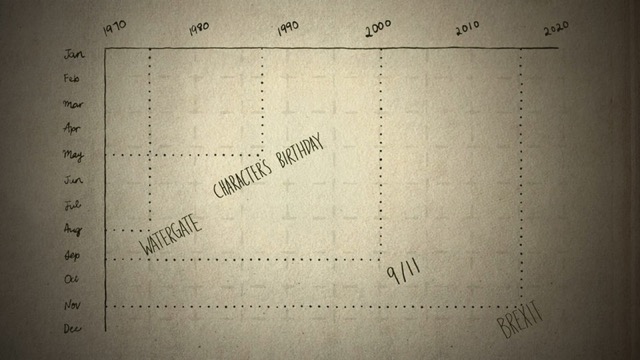 1970 1980 1990 2000 2010 2020
Jan
Feb
Mar
Apr
May
Jun
Jul
Aug
Sep
Oct
Nov
Dec
CHARACTER'S BIRTHDAY
WATERGATE
9/11
BREXIT